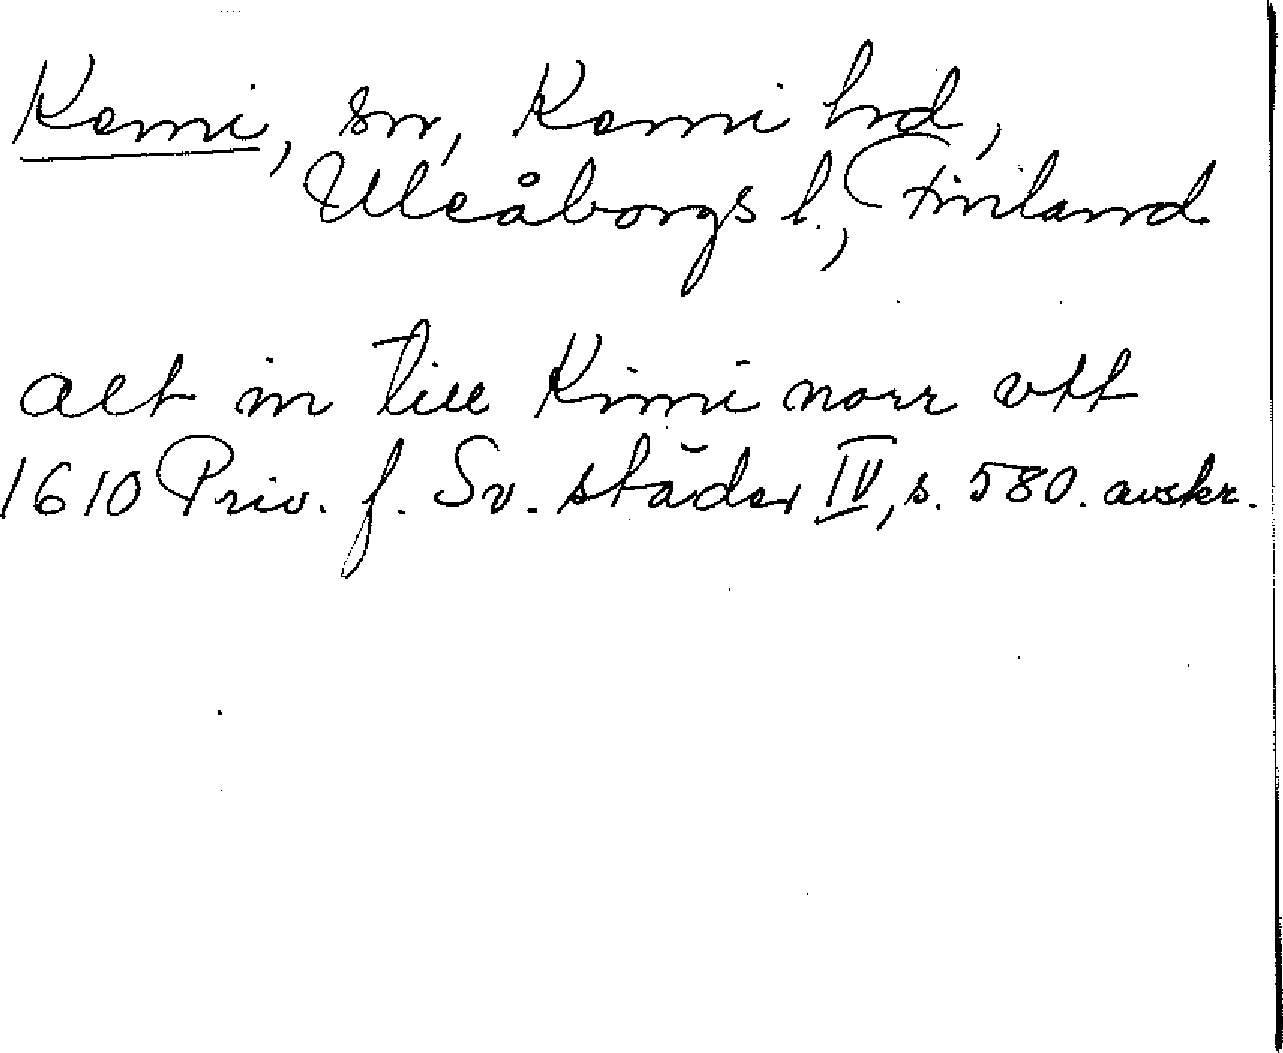 Kemi, sn, Kemi hd,
Uleåborgs l., Finland
alt in till Kimi norr utt
1610 Priv. f. Sv. städer IV, s. 580. avskr.